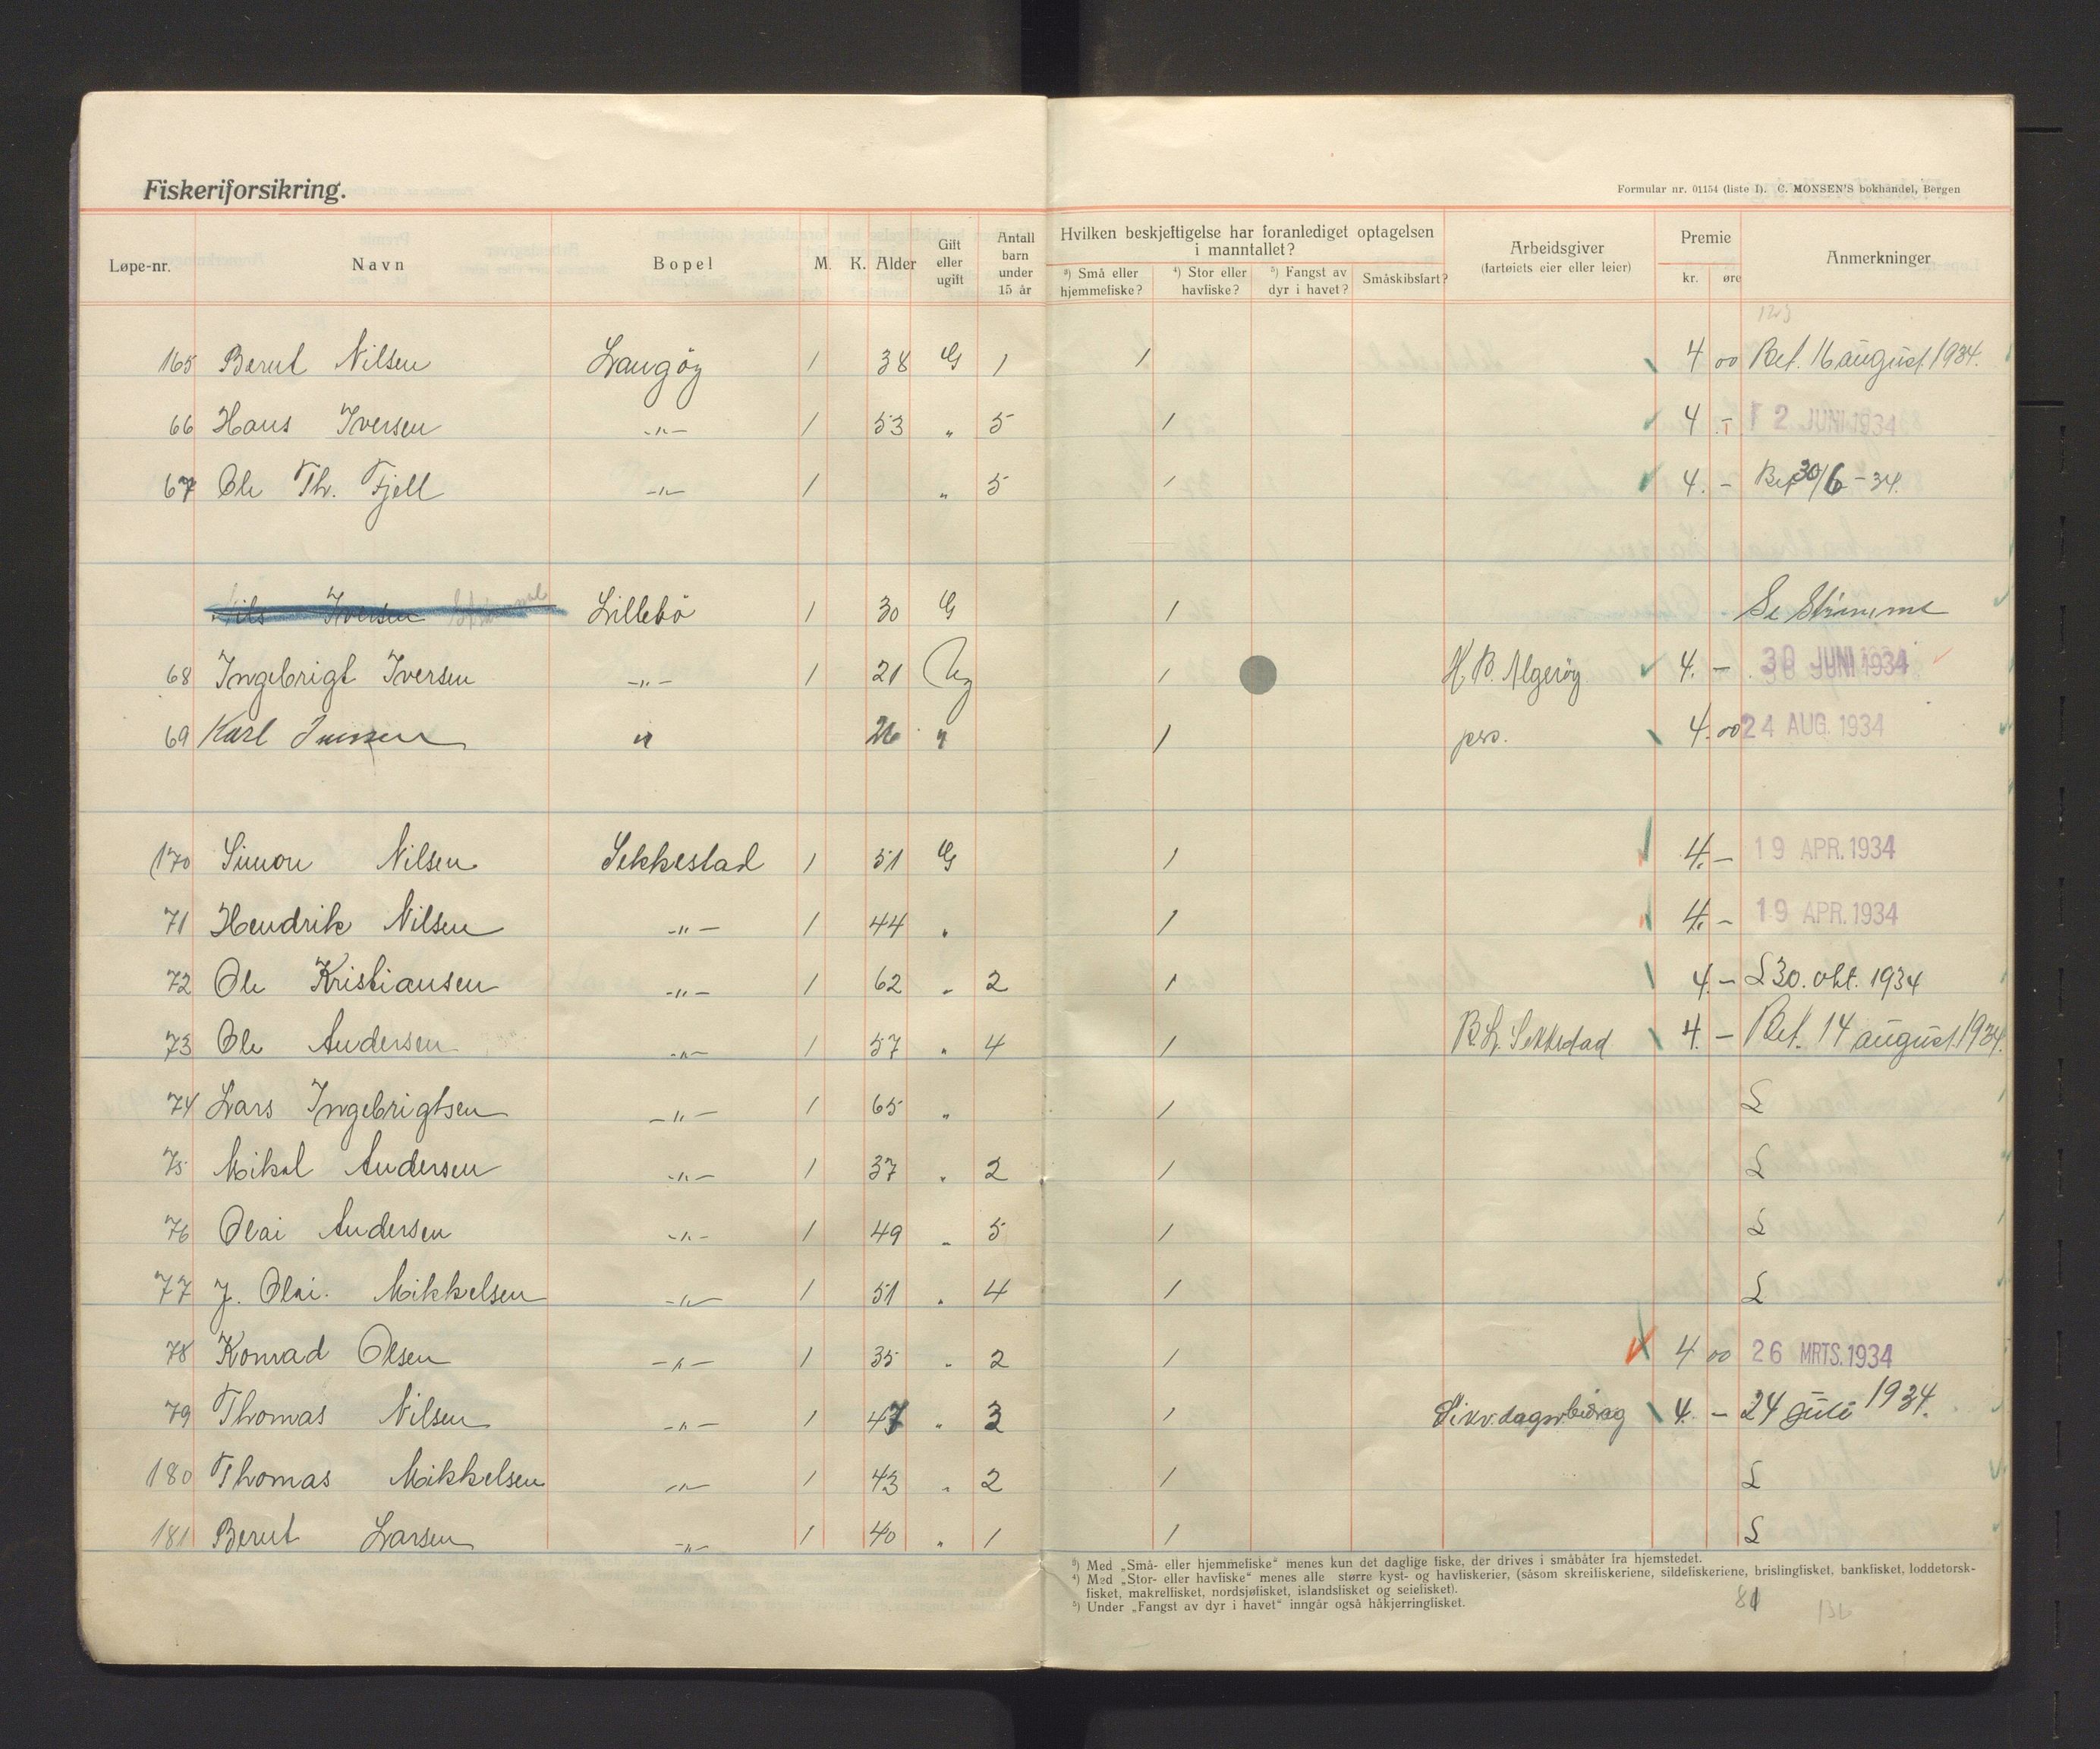 Fiskeriforsikring.
Formular nr. 01154 (liste I). C. MONSEN'S bokhandel, Bergen
Løpe-nr. Navn Bopel M. K. Alder Gift eller ugift Antall barn under 15 år Hvilken beskjeftigelse har foranlediget optagelsen i manntallet? Arbeidsgiver (fartøiets eier eller leier) Premie Anmerkninger
³) Små eller hjemmefiske? ⁴) Stor eller havfiske? ⁵) Fangst av dyr i havet? Småskibsfart? kr. øre
165 Berut Nilsen Langöy 1 38 G 1 1 4 00 Bet. 16 august 1934.
66 Hans Iversen -"- 1 53 " 5 1 4 - 12 JUNI 1934
67 Ole Th. Fjell -"- 1 " 5 1 4. - Bet 30/6 - 34.
Nils Iversen Lillebö 1 30 G 1 Se Strømme
68 Ingebrigt Iversen -"- 1 21 Ug 1 H. B. Algeröy 4. - 30 JUNI 1934
69 Karl Iversen " 26 " 1 4.00 24 AUG. 1934
170 Simon Nilsen Sekkestad 1 51 G 1 4.- 19 APR. 1934
71 Hendrik Nilsen -"- 1 44 " 1 4.- 19 APR. 1934
72 Ole Kristiansen -"- 1 62 " 2 1 4.- L 30. okt. 1934
73 Ole Andersen -"- 1 57 " 4 1 4. - Bet. 14 august 1934.
74 Lars Ingebrigtsen -"- 1 65 " 1 L
75 Mikal Andersen -"- 1 37 " 2 1 L
76 Olai Andersen -"- 1 49 " 5 1 L
77 J. Olai. Mikkelsen -"- 1 51 " 4 1 L
78 Konrad Olsen -"- 1 35 " 2 1 4 00 26 MRTS. 1934
79 Thomas Nilsen -"- 1 47 " 3 1 4. - 24 juli 1934.
180 Thomas Mikkelsen -"- 1 43 " 2 1 L
181 Berut Larsen -"- 1 40 " 1 1 L
³) Med „Små- eller hjemmefiske" menes kun det daglige fiske, der drives i småbåter fra hjemstedet.
⁴) Med „Stor- eller havfiske" menes alle større kyst- og havfiskerier, (såsom skreifiskeriene, sildefiskeriene, brislingfisket, bankfisket, loddetorsk-
fisket, makrelfisket, nordsjøfisket, islandsfisket og seiefisket).
⁵) Under „Fangst av dyr i havet" inngår også håkjerringfisket.
81